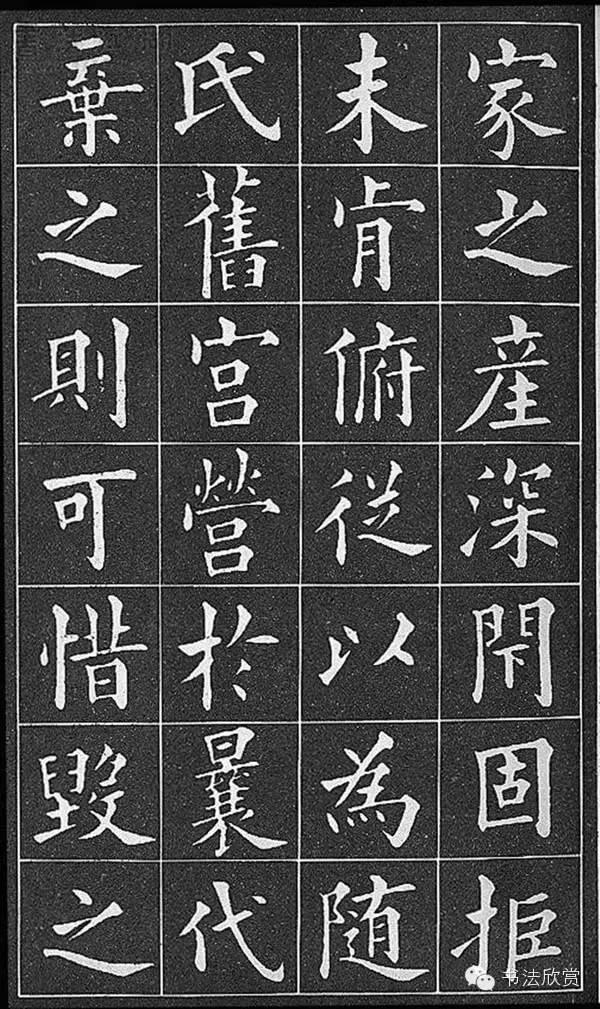 家之産深閇固拒
未肯俯従以為随
氏舊宫營於曩代
棄之則可惜毀之
书法欣赏